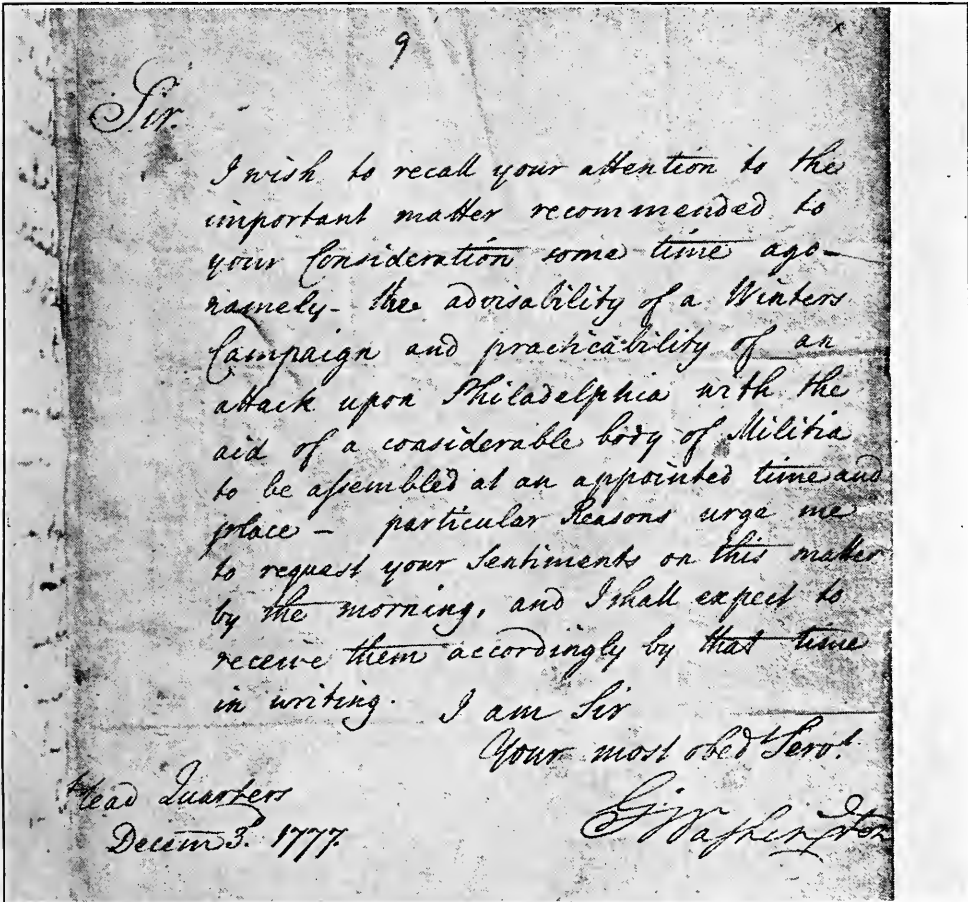 9
x
Sir.
I wish to recall your attention to the
important matter recommended to
your Consideration some time ago—
namely– the advisability of a Winters
Campaign and practicability of an
attack upon Philadelphia with the
aid of a considerable body of Militia
to be aſsembled at an appointed time and
place – particular Reasons urge me
to request your Sentiments on this matter
by the morning, and I shall expect to
receive them accordingly by that time
in writing. I am Sir
Your most obedt Servt.
Head Quarters
Decem 3. 1777.
G Washington